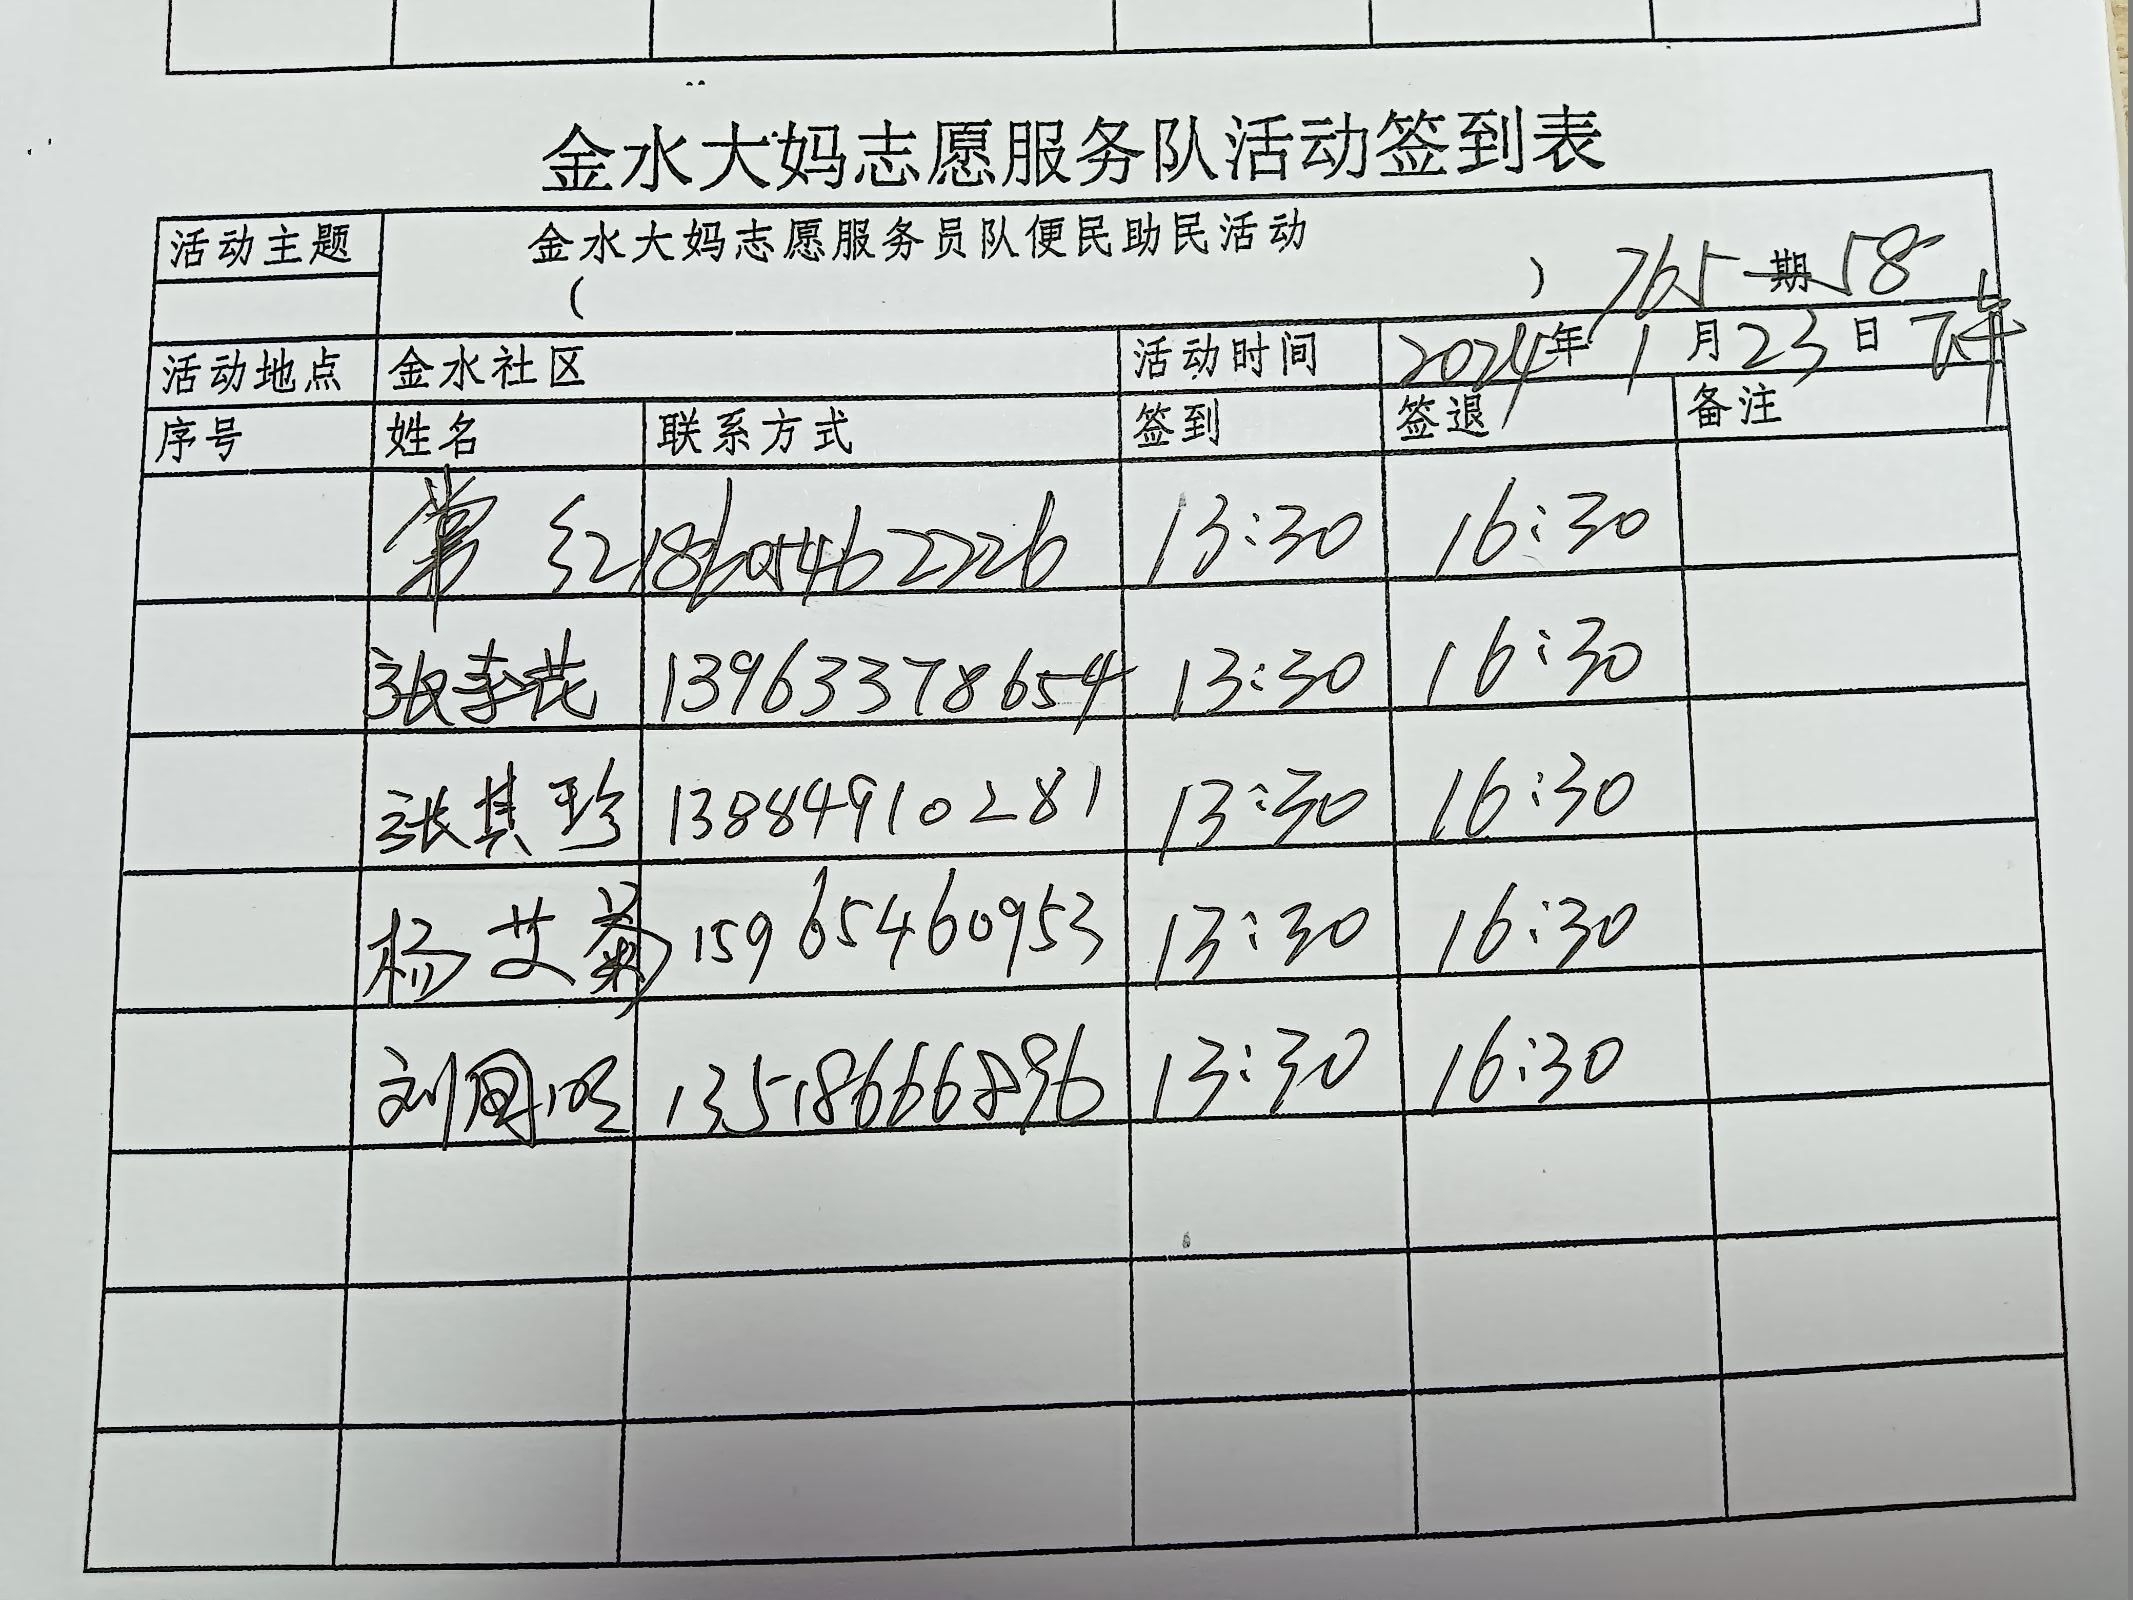 金水大妈志愿服务队活动签到表
活动主题 金水大妈志愿服务员队便民助民活动
( ) 765期58
活动地点 金水社区 活动时间 2024年1月23日下午
序号 姓名 联系方式 签到 签退 备注
常红 18605462226 13:30 16:30
张季茂 13963378654 13:30 16:30
张其珍 13884910281 13:30 16:30
杨艾菊 15965460953 13:30 16:30
刘国明 13518666896 13:30 16:30